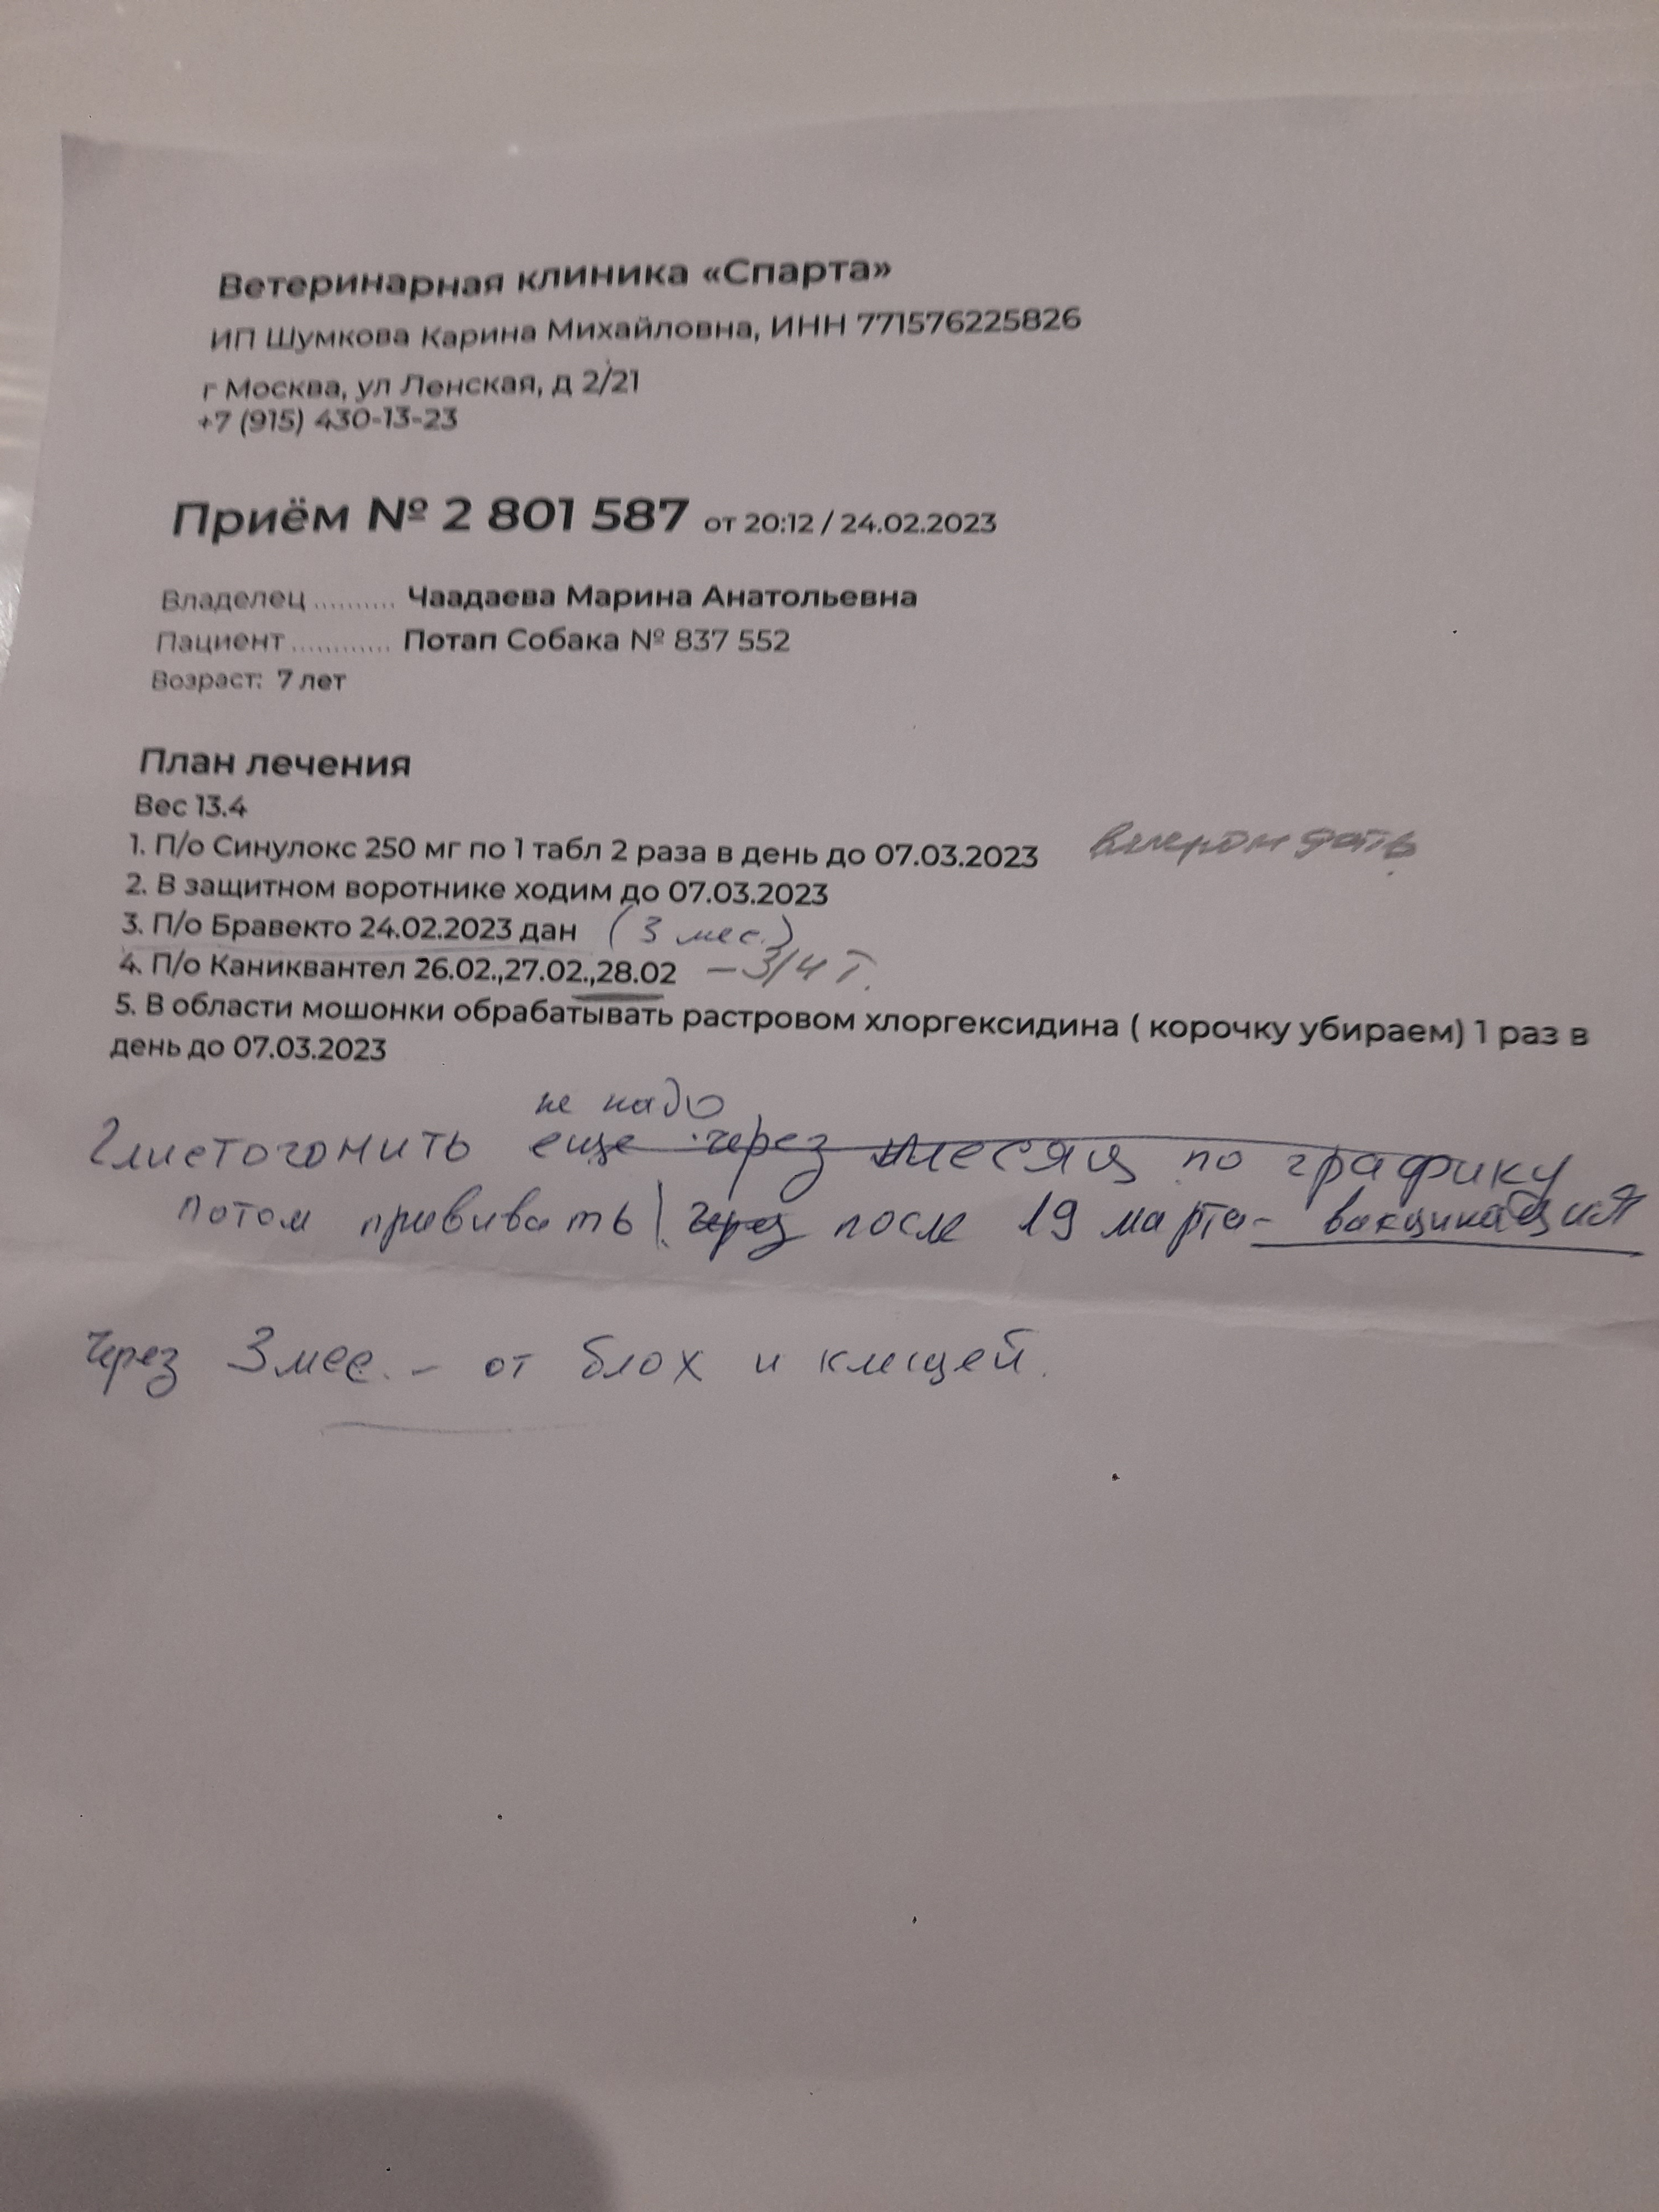 Ветеринарная клиника «Спарта»
ИП Шумкова Карина Михайловна, ИНН 771576225826
г Москва, ул Ленская, д 2/21
+7 (915) 430-13-23
Приём № 2 801 587 от 20:12 / 24.02.2023
Владелец .......... Чаадаева Марина Анатольевна
Пациент ............ Потап Собака № 837 552
Возраст: 7 лет
План лечения
Вес 13.4
1. П/о Синулокс 250 мг по 1 табл 2 раза в день до 07.03.2023 вечером дать
2. В защитном воротнике ходим до 07.03.2023
3. П/о Бравекто 24.02.2023 дан (3 мес.)
4. П/о Каниквантел 26.02.,27.02.,28.02 – 3/4 т.
5. В области мошонки обрабатывать растровом хлоргексидина ( корочку убираем) 1 раз в
день до 07.03.2023
не надо
Глистогонить еще через месяц по графику
потом прививать через после 19 марта - вакцинация
Через 3 мес. – от блох и клещей.